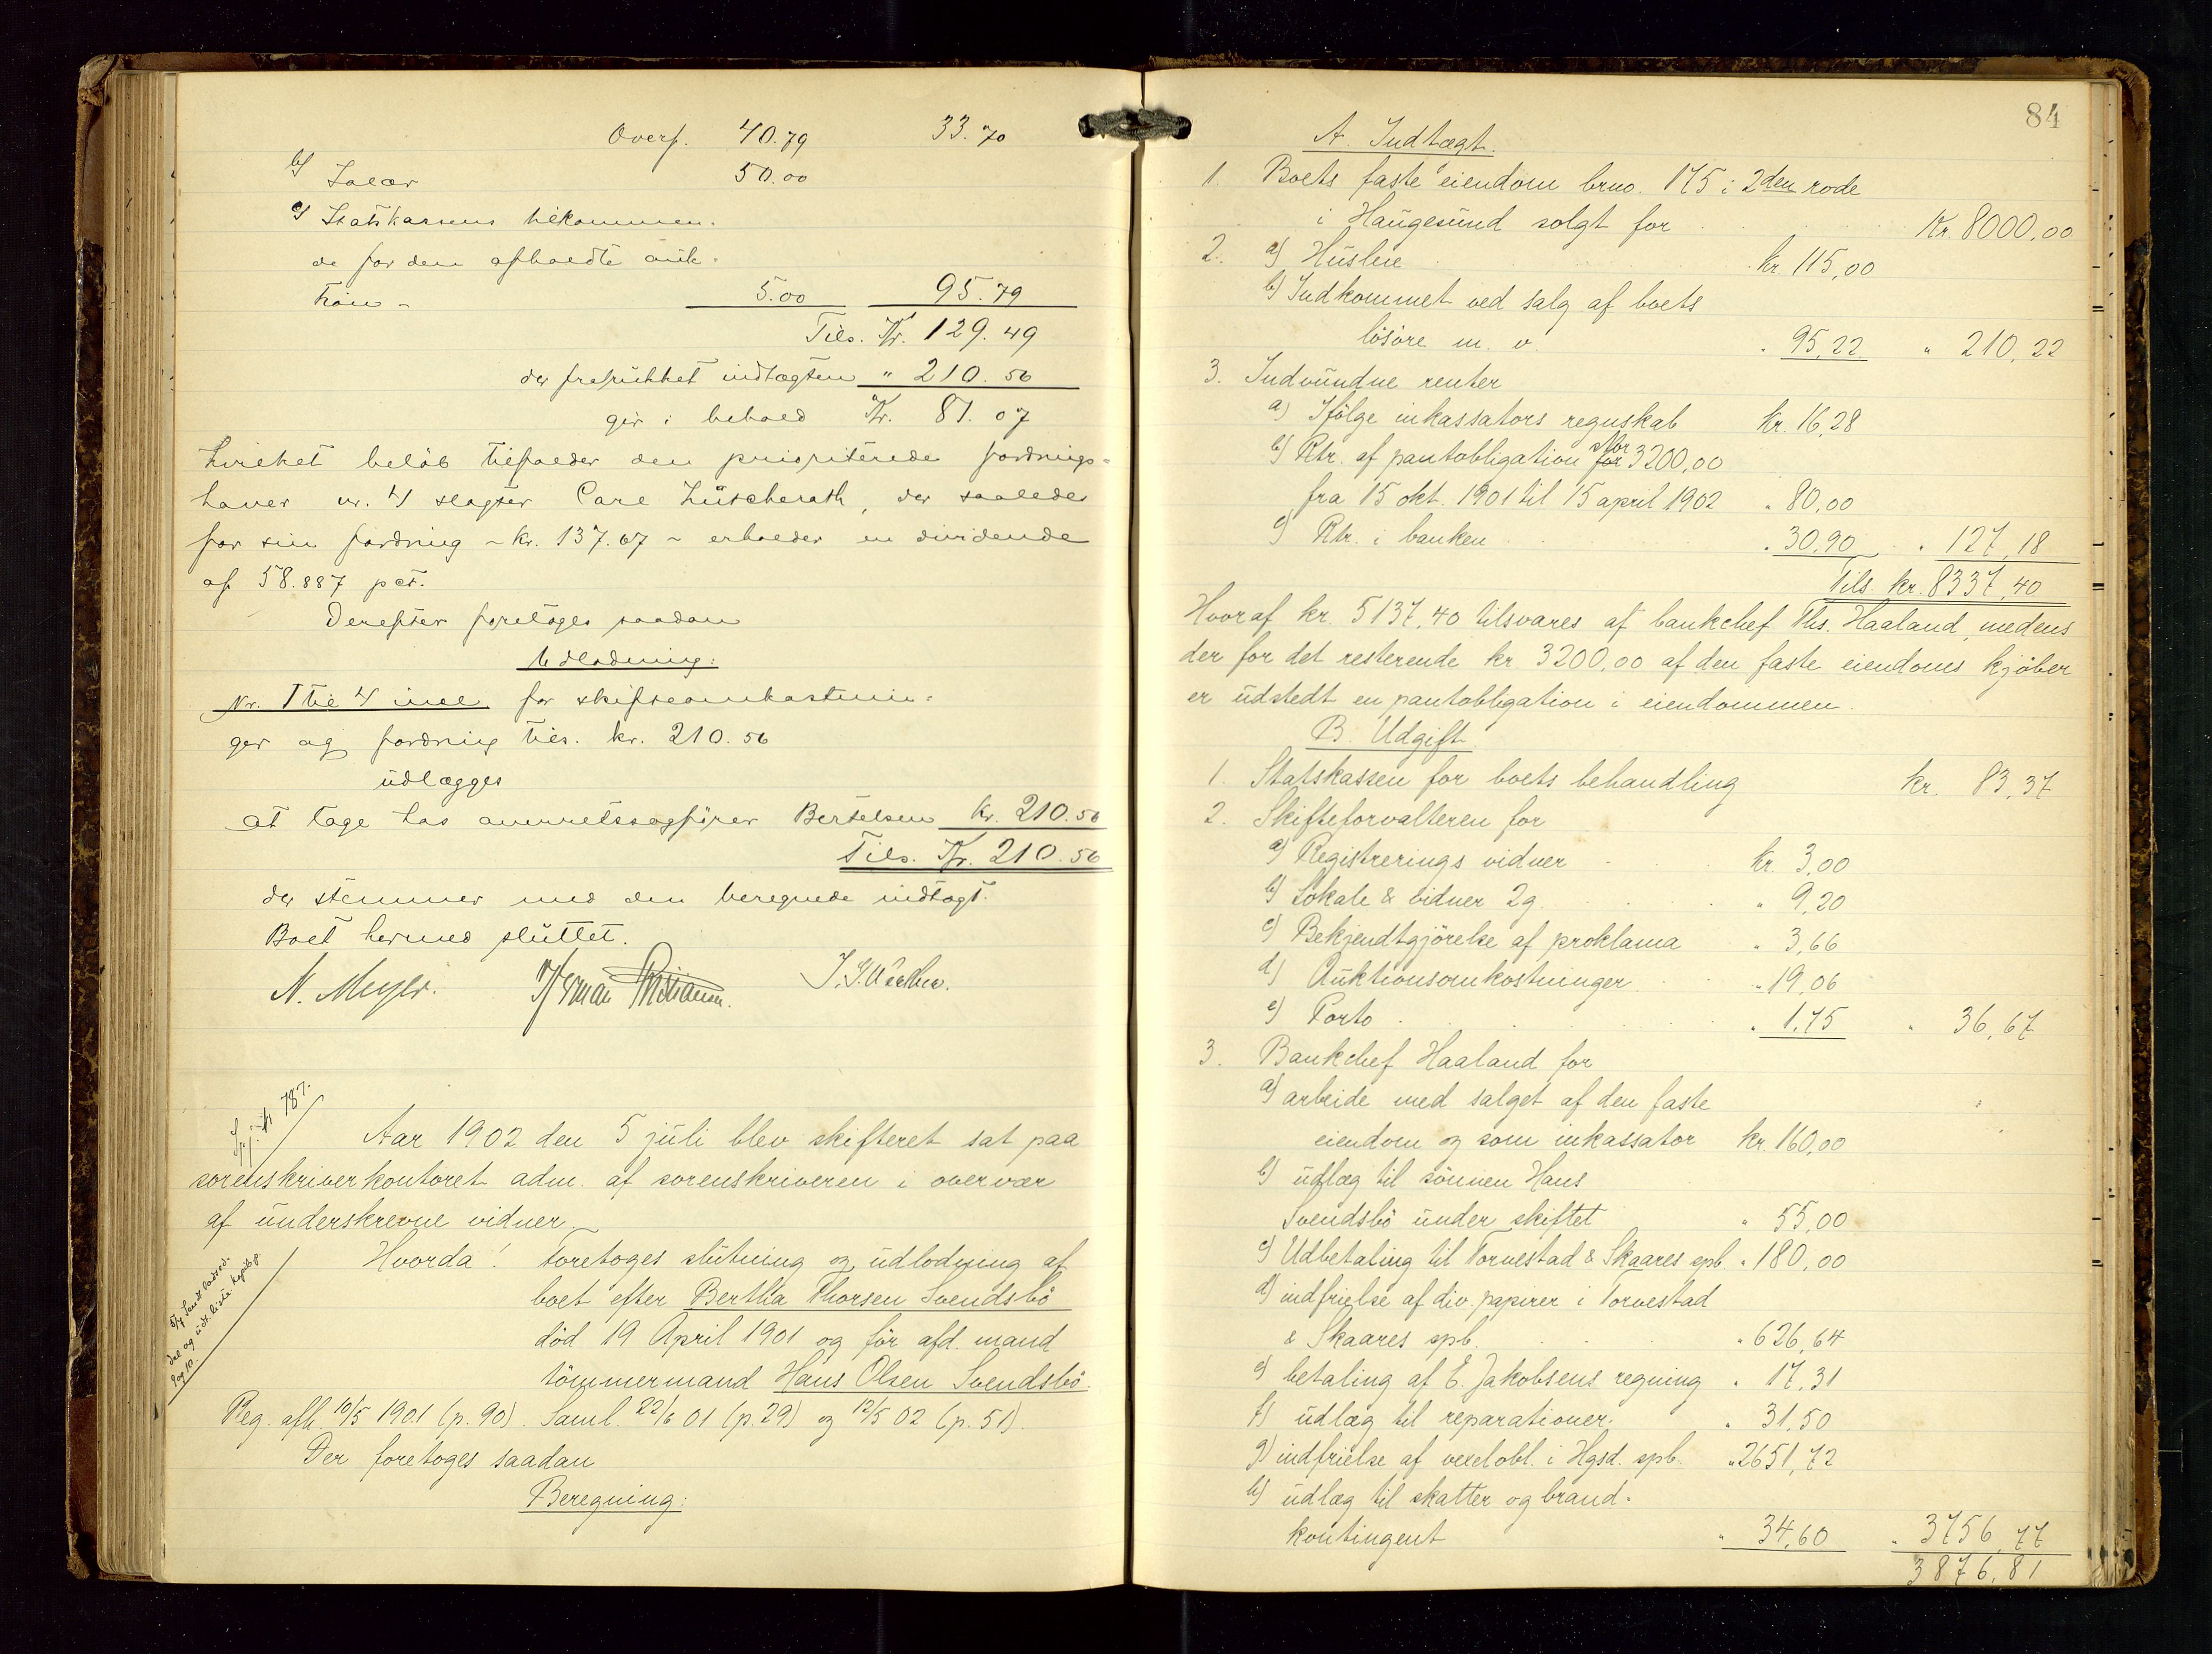 Overf. 40.79 33.70
b) Salær 50.00
c) Statskassens tilkommen-
de for den afholdte auk-
tion - 5.00 95.79
Tils. Kr. 129.49
der frafrukket indtægten " 210.56
gir i behold Kr. 81.07
hvilket beløb tilfalder den prioriterede fordrings-
haver nr. 4 slagter Carl Lütcherath, der saaledes
for sin fordring - kr. 137.67 - erholder en dividende
af 58.887 pct.
Derefter foretoges saadan
Udlodning:
Nr. 1 til 4 incl. for skifteomkostnin-
ger og fordring tils. kr. 210.56
udlægges
at tage hos overretssagfører Bertelsen Kr. 210.56
Tils. Kr. 210.56
der stemmer med den beregnede indtægt.
Boet hermed sluttet.
N. Meyer. Herman Kristiansen.
787.
Aar 1902 den 5 juli blev skifteret sat paa
sorenskriverkontoret adm. af sorenskriveren i overvær
af underskrevne vidner
Hvorda! Foretoges slutning og udlodning af
boet efter Bertha Thorsen Svendsbö
död 19 April 1901 og för afd. mand
tömmermand Hans Olsen Svendsbö.
Reg. afh. 10/5 1901 (p. 90). Saml. 22/6 01 (p. 29) og 12/5 02 (p. 51).
Der foretoges saadan
Beregning:
84
A. Indtægt.
1. Boets faste eiendom brno. 175 i 2den rode
i Haugesund solgt for Kr. 8000,00
2. a) Husleie kr 115,00
b) Indkommet ved salg af boets
lösöre m. v. " 95,22 " 210,22
3. Indvundne renter
a) Ifölge inkassators regnskab Kr. 16,28
b) Rtr. af pantobligation for 3200,00
fra 15 okt. 1901 til 15 april 1902 " 80,00
c) Rtr. i banken " 30,90 " 127,18
Tils. kr. 8337,40
Hvoraf kr. 5137,40 tilsvares af bankchef Ths. Haaland, medens
der for det resterende kr 3200,00 af den faste eiendoms kjöber
er udstedt en pantobligation i eiendommen.
B. Udgift.
1. Statskassen for boets behandling kr. 83,37
2. Skifteforvalteren for
a) Registrerings vidner kr. 3,00
b) Lokale & vidner 2g. " 9,20
c) Bekjendtgjörelse af proklama " 3,66
d) Auktionsomkostninger " 19,06
e) Porto " 1,75 " 36,67
3. Bankchef Haaland for
a) arbeide med salget af den faste
eiendom og som inkassator kr. 160,00
b) udlæg til sönnen Hans
Svendsbö under skiftet " 55,00
c) Udbetaling til Torvestad & Skaares spb. " 180,00
d) indfrielse af div. papirer i Torvestad
& Skaares spb. " 626,64
e) betaling af E. Jakobsens regning " 17,31
f) udlæg til reparationer. " 31,50
g) indfrielse af vexelobl. i Hgsd. spb. " 2651,72
h) udlæg til skatter og brand-
kontingent " 34,60 " 3756,77
3876,81